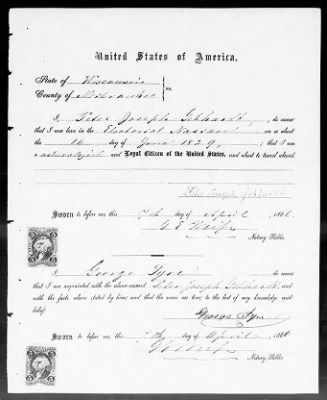 United States of America.
State of Wisconsin
County of Milwaukee } ss.
I, Peter Joseph Gebhardt, do swear
that I was born in the Electorial Nassau, on or about
the 16 day of June 1829; that I am
a naturalized and Loyal Citizen of the United States, and about to travel abroad.
Peter Joseph Gebhardt
Sworn to before me this 7th day of April 186
Notary Public.
I, George Tyre, do swear
that I am acquainted with the above-named Peter Joseph Gebhardt and
with the facts above stated by him; and that the same are true, to the best of my knowledge and
belief.
George Tyre
Sworn to before me, this 7th day of April 186
Notary Public.